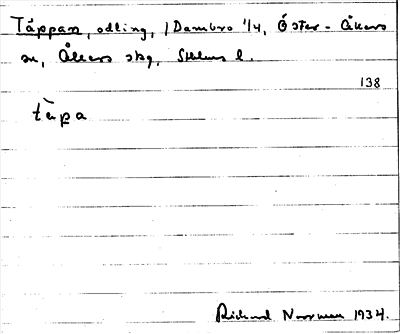 Täppan, odling, i Dambro 1/4, Öster-Åkers
sn, Åkers skg, Sthlms l.
138
tàpa
Rickard Norrman 1934.